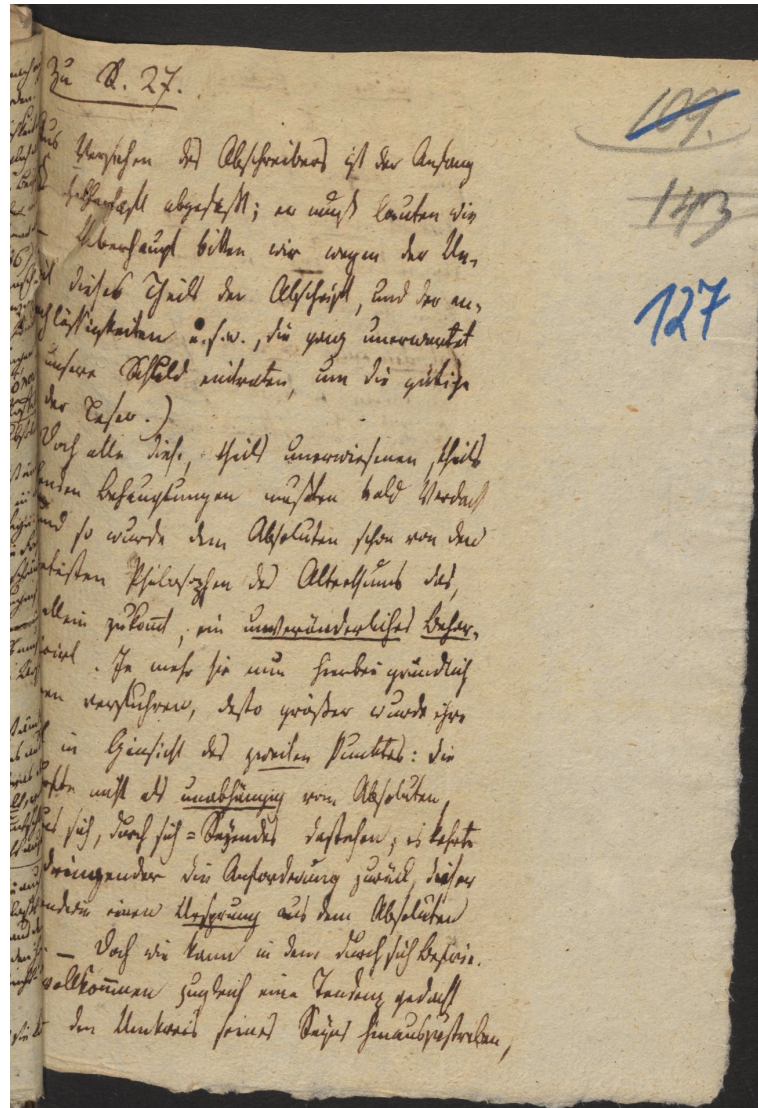 Zu S. 27.
109.
143
127
Aus Versehen des Abschreibers ist der Anfang
fehlerhaft abgefaßt; er muß lauten wie
Ueberhaupt bitten wir wegen der Un-
dieses Theils der Abschrift, und der an-
lässigkeiten u.s.w., die ganz unerwartet
unsere Schuld eintraten, um die gütige
der Leser.)
Doch alle diese, theils unerwiesenen, theils
Behauptungen mußten bald Verdacht
und so wurde dem Absoluten schon von den
Philosophen des Alterthums das,
allein zukomt, ein unveränderliches Behar-
. Je mehr sie nun hierbei gründlich
verfuhren, desto größer wurde ihre
in Hinsicht des zweiten Punktes: die
nicht als unabhängig vom Absoluten,
sich, durch sich = Seyendes dastehen; es kehrte
dringender die Anforderung zurück, dieser
einen Ursprung aus dem Absoluten
— Doch wie kann in dem durch sich
vollkommen zugleich eine Tendenz gedacht
den Umkreis seines Seyns hinauszustreben,